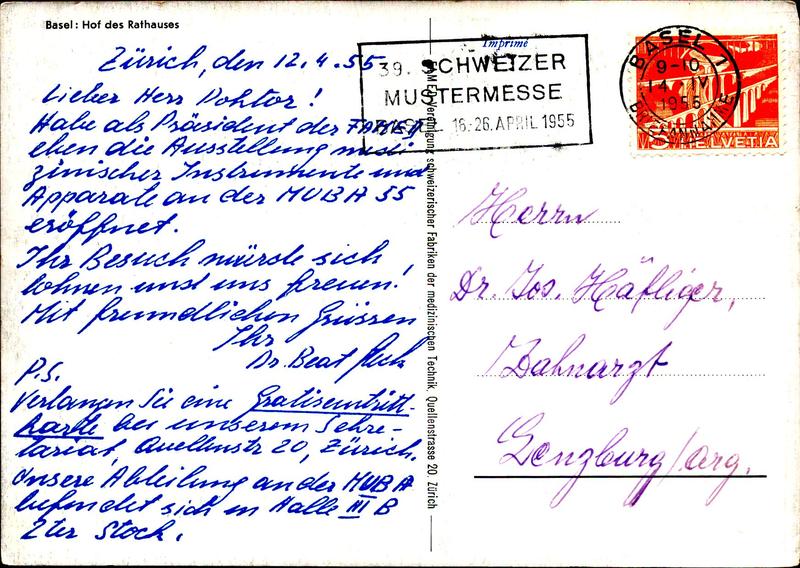 Basel: Hof des Rathauses
Zürich, den 12.4.55
Lieber Herr Doktor!
Habe als Präsident der FAMED
eben die Ausstellung medi
zinischer Instrumente und
Apparate an der MUBA 55
eröffnet.
Ihr Besuch würde sich
lohnen und uns freuen!
Mit freundlichen Grüssen
Ihr
Dr. Beat
P.S.
Verlangen Sie eine Gratiseintritt-
karte bei unserem Sekre-
tariat, Quellenstr 20, Zürich.
Unsere Abteilung an der MUBA
befindet sich in Halle III B
2ter Stock.
FAMED, Vereinigung schweizerischer Fabriken der medizinischen Technik, Quellenstrasse 20 Zürich
Imprimé
39. SCHWEIZER
MUSTERMESSE
BASEL 16.-26. APRIL 1955
BASEL 1
9-10
14. IV
1955
BRIEFANNAHME
HELVETIA
Herrn
Dr. Jos. Häfliger,
Zahnarzt
Lenzburg/Arg.